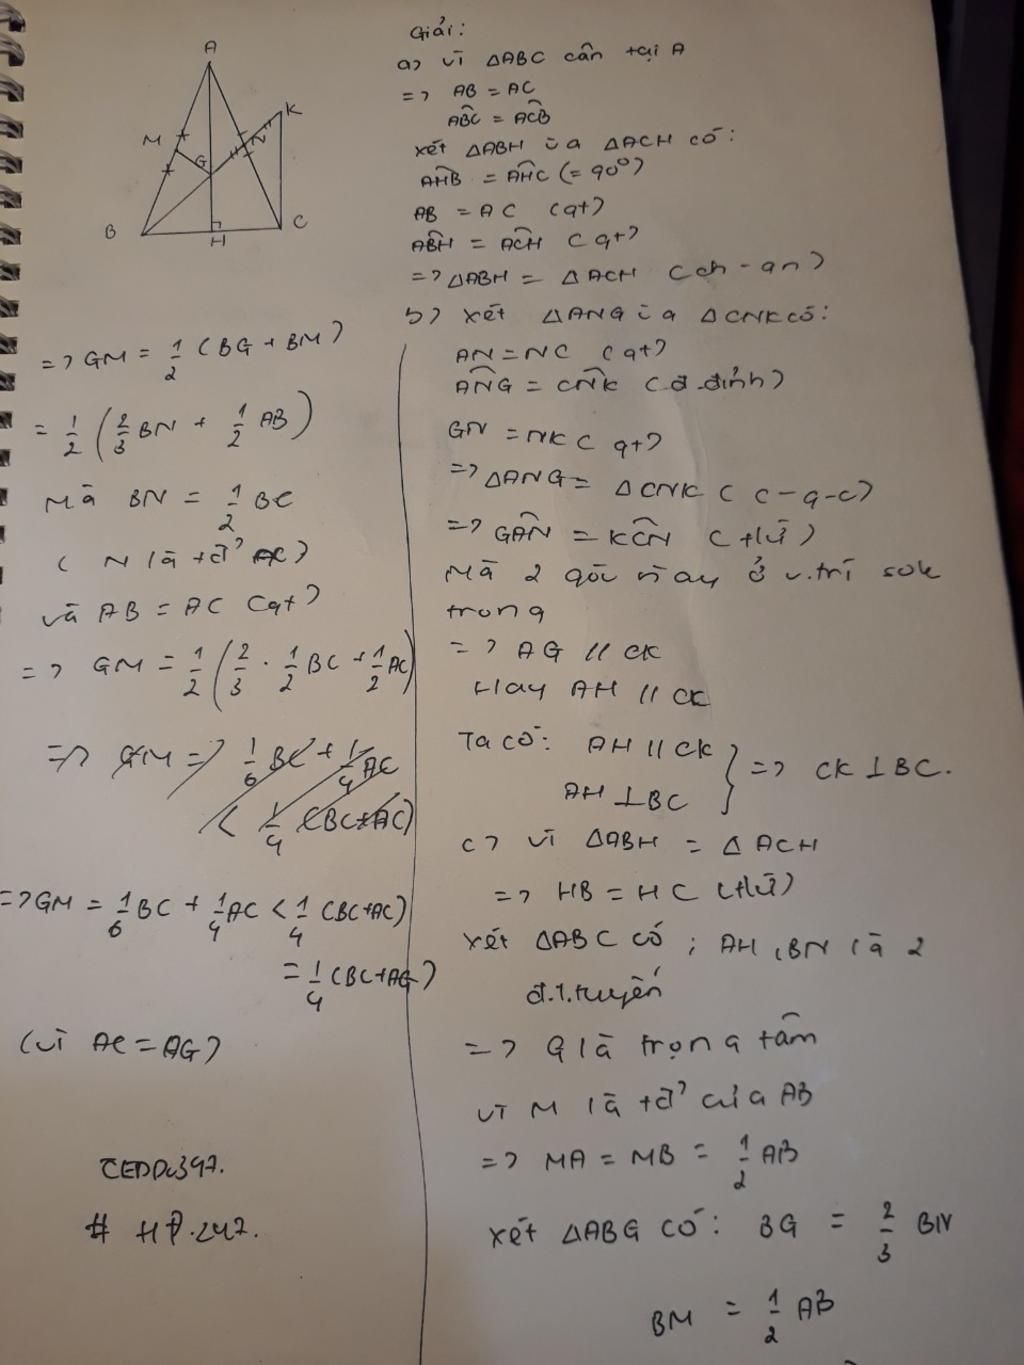 A
K
M
N
G
B
H
C
Giải:
a) vì △ABC cân tại A
=> AB = AC
ABC = ACB
xét △ABH và △ACH có:
AHB = AHC (= 90°)
AB = AC (gt)
ABH = ACH (gt)
=> △ABH = △ACH (ch - gn)
b) xét △ANG và △CNK có:
AN = NC (gt)
ANG = CNK (đ.đỉnh)
GN = NK (gt)
=> △ANG = △CNK (c-g-c)
=> GAN = KCN (tứ)
Mà 2 góc này ở v.trí sole
trong
=> AG // CK
Hay AH // CK
Ta có: AH // CK
AH ⊥ BC
} => CK ⊥ BC.
c) vì △ABH = △ACH
=> HB = HC (tứ)
xét △ABC có: AH, BN là 2
đ.t.tuyến
=> G là trọng tâm
vì M là tđ' của AB
=> MA = MB = 1/2 AB
xét △ABG có: BG = 2/3 BN
BM = 1/2 AB
=> GM = 1/2 (BG + BM)
= 1/2 (2/3 BN + 1/2 AB)
Mà BN = 1/2 BC
( N là tđ' AC)
và AB = AC (gt)
=> GM = 1/2 (2/3 . 1/2 BC + 1/2 AC)
=> GM => 1/6 BC + 1/4 AC
< 1/4 (BC + AC)
=> GM = 1/6 BC + 1/4 AC < 1/4 (BC + AC)
= 1/4 (BC + AG)
(vì AC = AG)